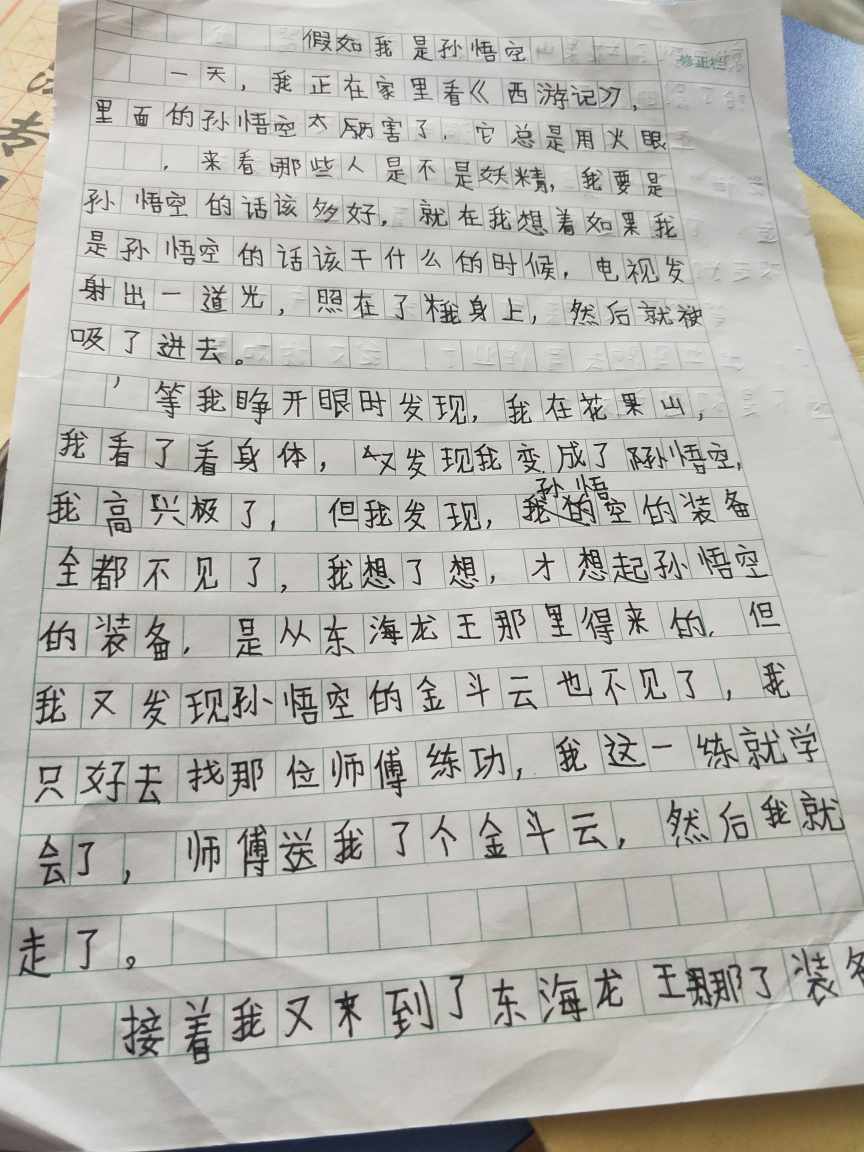 假如我是孙悟空
修正栏
一天，我正在家里看《西游记》，
里面的孙悟空太厉害了，它总是用火眼
，来看哪些人是不是妖精，我要是
孙悟空的话该多好，就在我想着如果我
是孙悟空的话该干什么的时候，电视发
射出一道光，照在了我身上，然后就被
吸了进去。
等我睁开眼时发现，我在花果山，
我看了看身体，又发现我变成了孙悟空，
我高兴极了，但我发现，孙悟空的装备
全都不见了，我想了想，才想起孙悟空
的装备，是从东海龙王那里得来的，但
我又发现孙悟空的金斗云也不见了，我
只好去找那位师傅练功，我这一练就学
会了，师傅送我了个金斗云，然后我就
走了。
接着我又来到了东海龙王那了装备